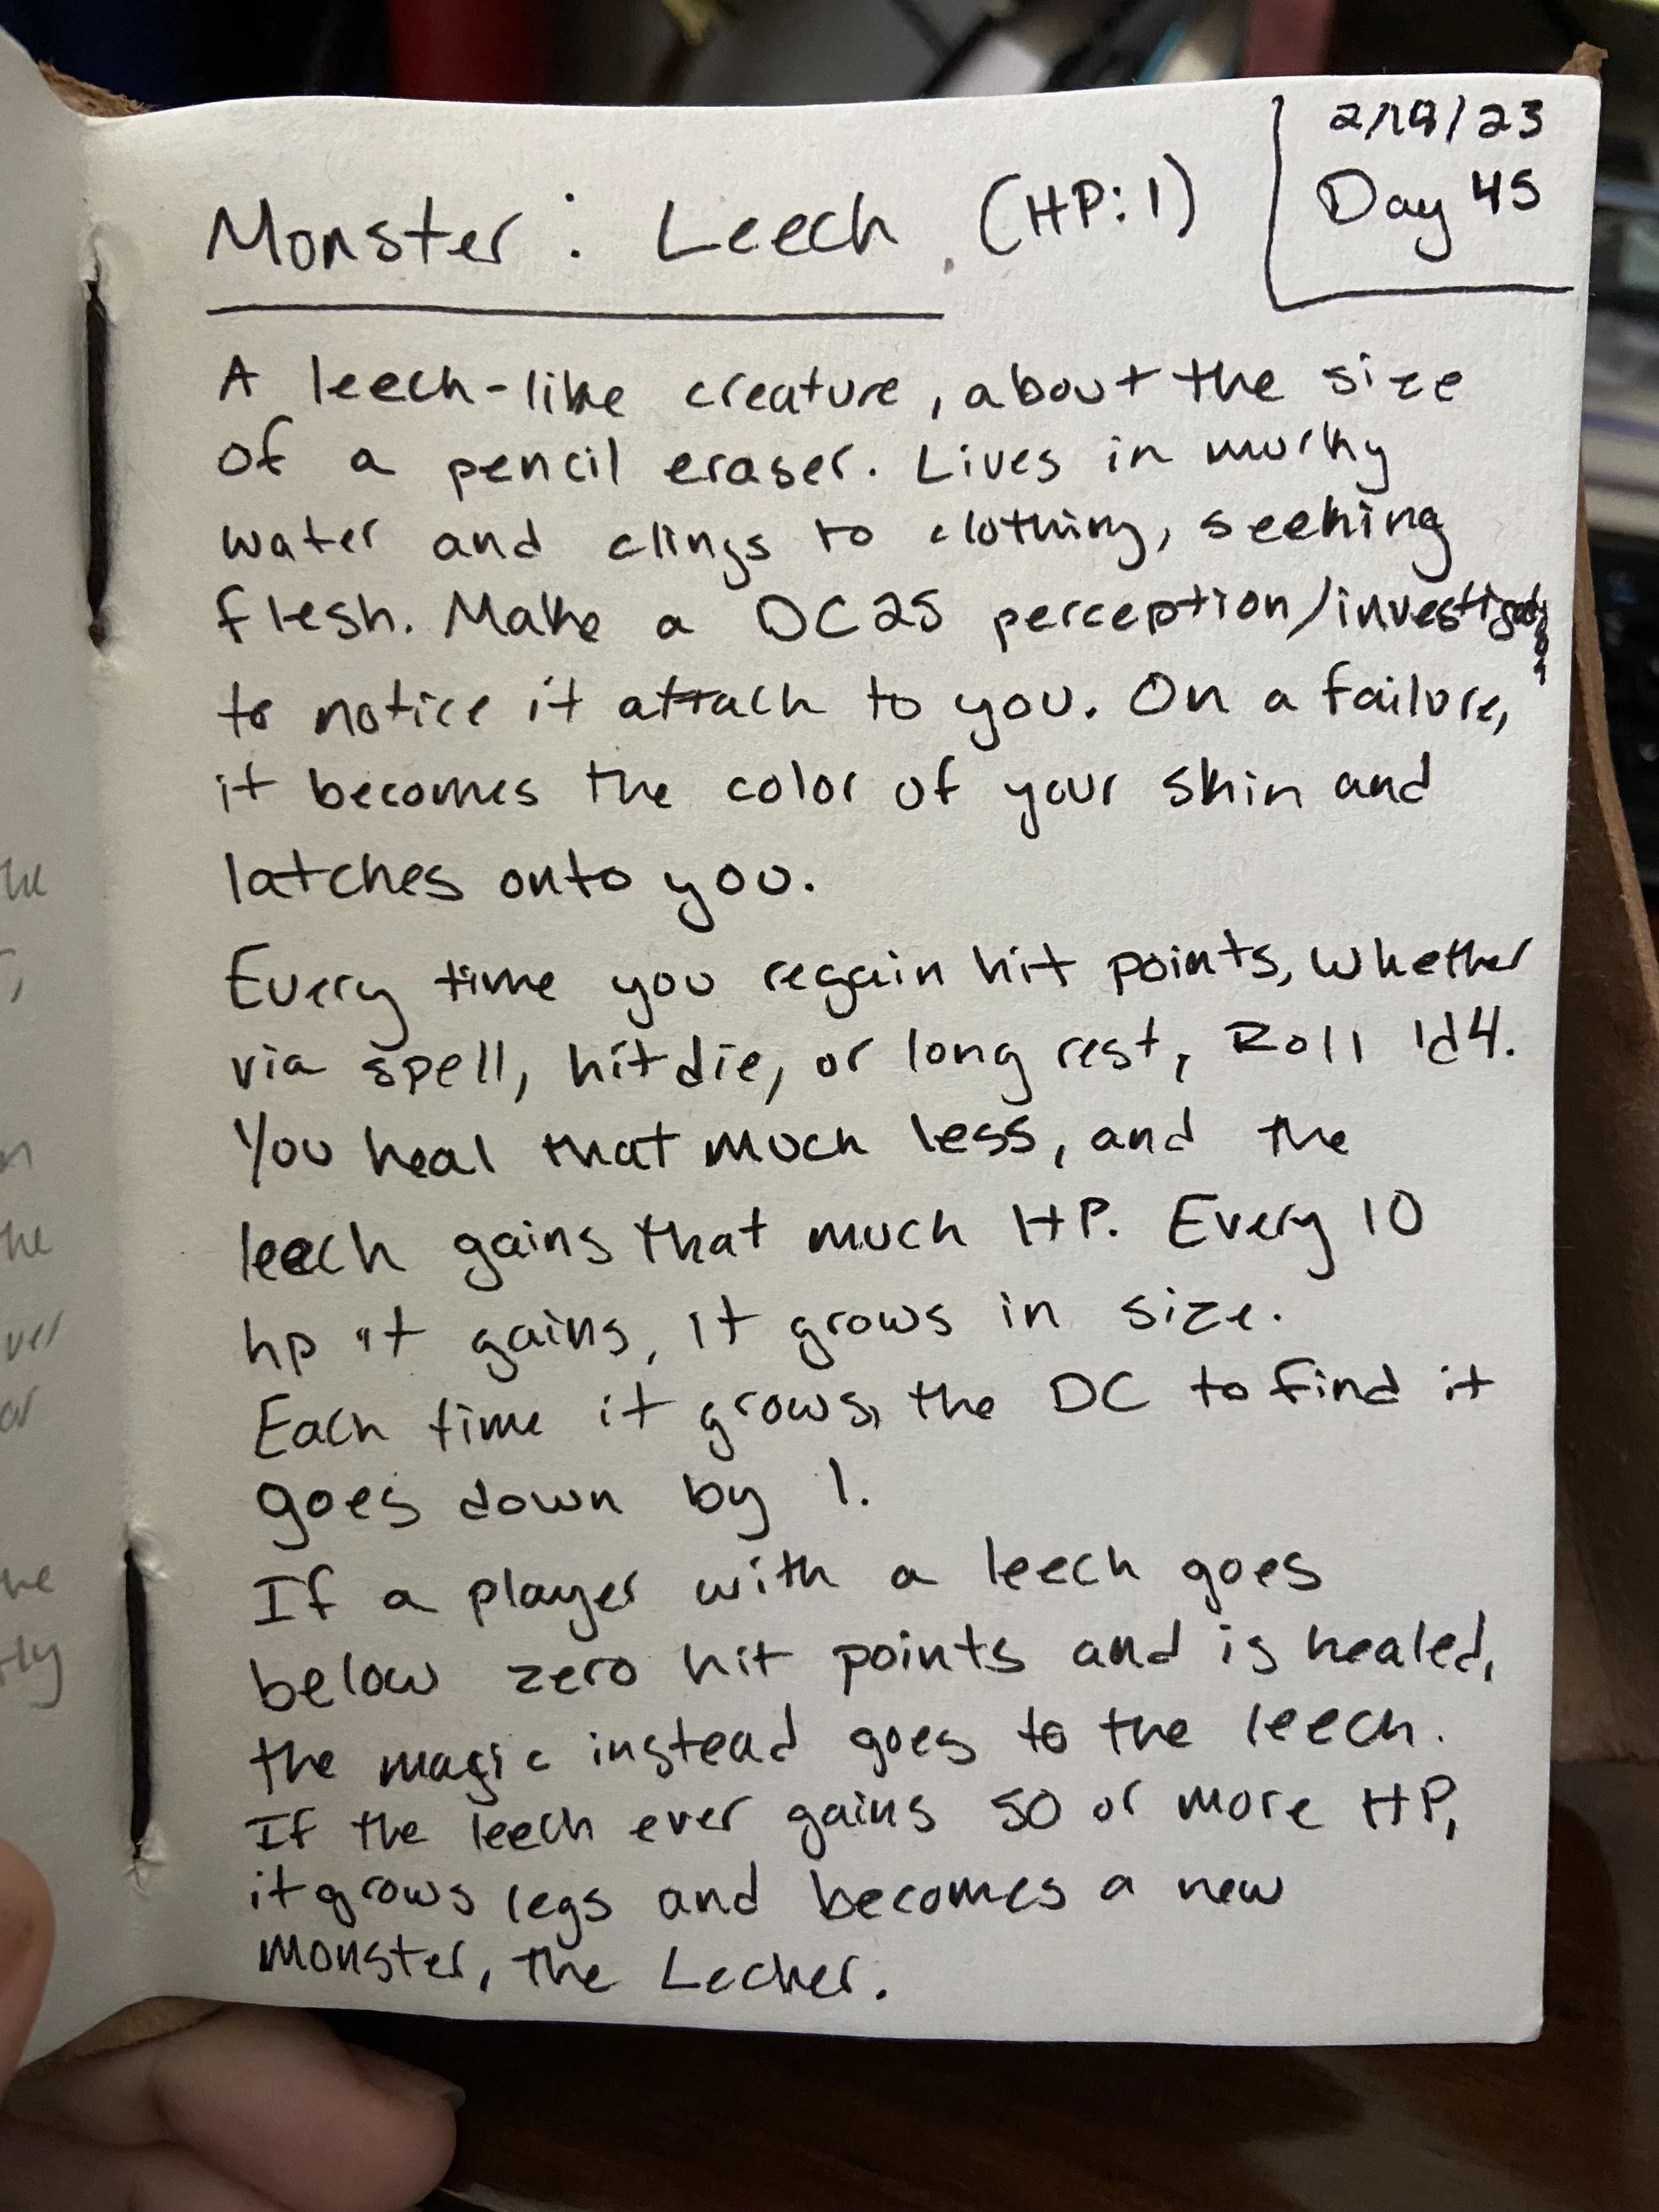 2/19/23
Day 45
Monster: Leech (HP: 1)
A leech-like creature, about the size
of a pencil eraser. Lives in murky
water and clings to clothing, seeking
flesh. Make a DC25 perception/investigation
to notice it attach to you. On a failure,
it becomes the color of your skin and
latches onto you.
Every time you regain hit points, whether
via spell, hit die, or long rest, Roll 1d4.
You heal that much less, and the
leech gains that much HP. Every 10
hp it gains, it grows in size.
Each time it grows, the DC to find it
goes down by 1.
If a player with a leech goes
below zero hit points and is healed,
the magic instead goes to the leech.
If the leech ever gains 50 or more HP,
it grows legs and becomes a new
monster, the Lecher.